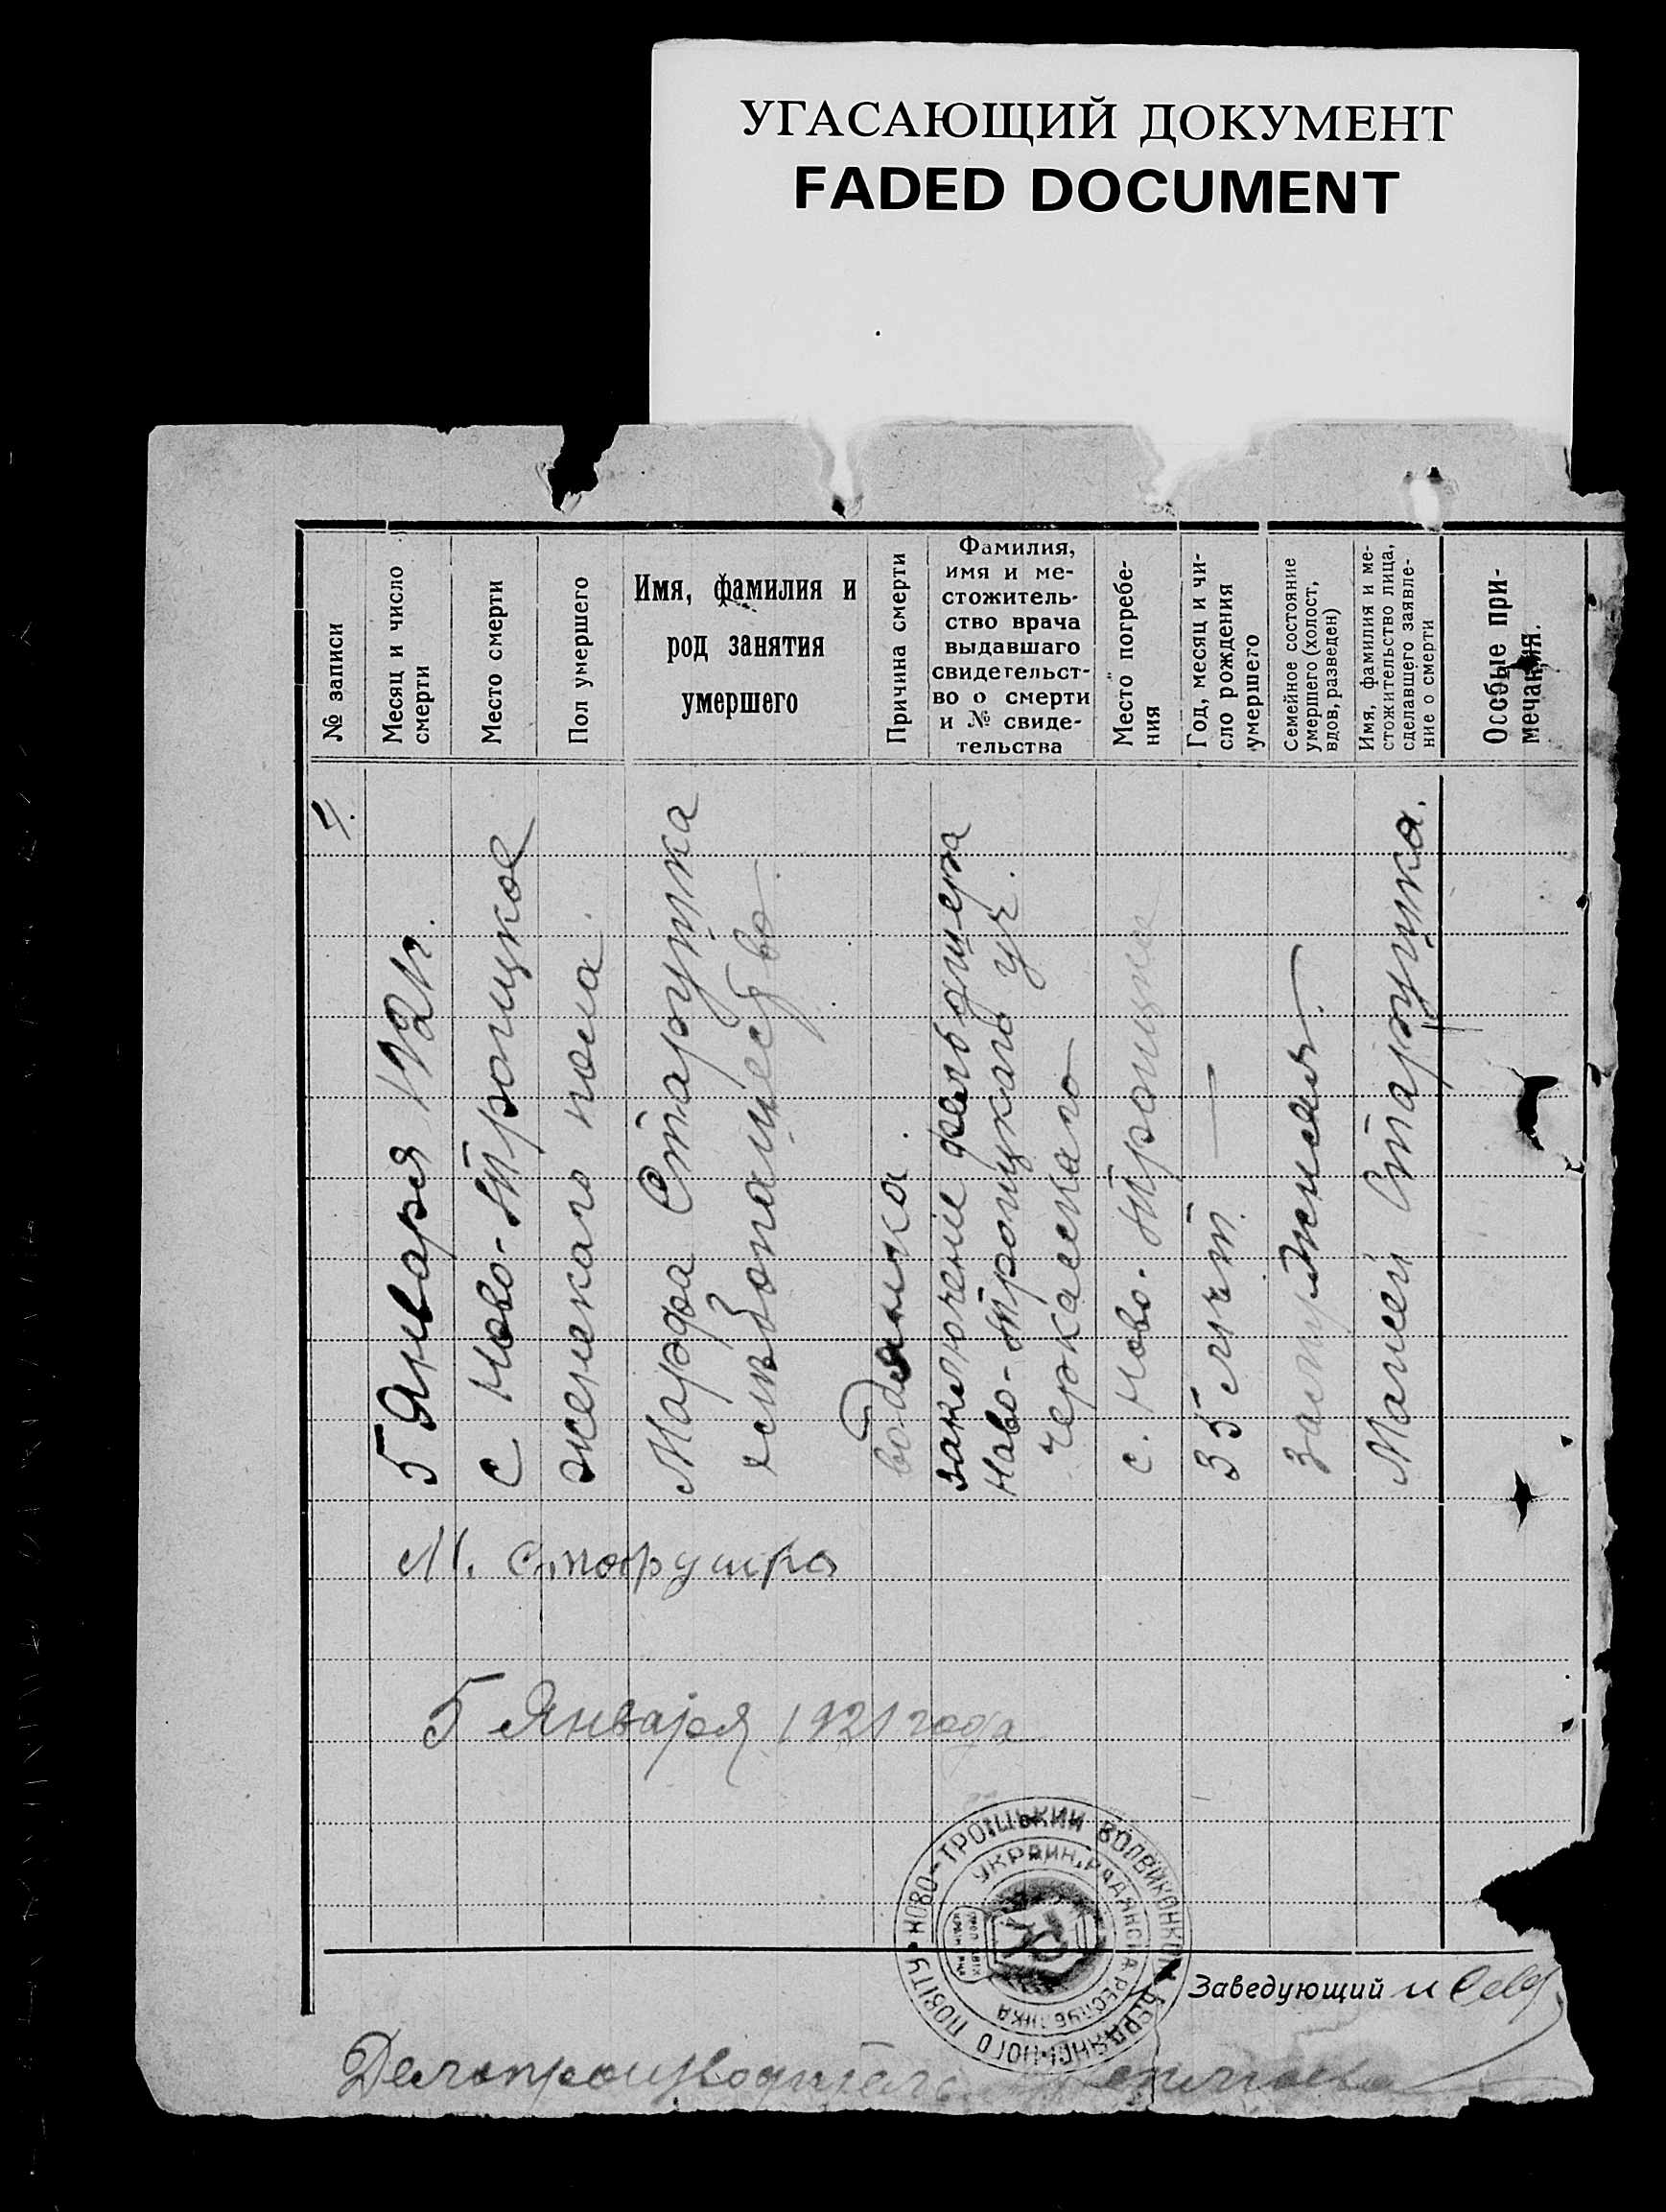 УГАСАЮЩИЙ ДОКУМЕНТ
FADED DOCUMENT
№ записи
Месяц и число
смерти
Место смерти
Пол умершего
Имя, фамилия и
род занятия
умершего
Причина смерти
Фамилия,
имя и ме-
стожитель-
ство врача
выдавшаго
свидетельст-
во о смерти
и № свиде-
тельства
Место погребе-
ния
Год, месяц и чи-
сло рождения
умершего
Семейное состояние
умершего (холост,
вдов, разведен)
Имя, фамилия и ме-
стожительство лица,
сделавшего заявле-
ние о смерти
Особые при-
мечания.
4.
5 Января 1921г.
с. Ново-Троицкое
женскаго пола.
Марфа Старушка
хлѣбопашество
водянка.
заключение фельдшера
Ново-Троицкаго уч.
Черкаскаго
с. Ново-Троицке
35 лѣт. —
замужняя.
Мойсей Старушка.
М. Старушка
5 Января 1921 года
НОВО-ТРОІЦЬКИЙ ВОЛВИКОНКОМ БЕРДЯНСЬКОГО ПОВІТУ
УКРАИН. РАДЯНСЬКА РЕСПУБЛИКА
Заведующий
Делопроизводитель